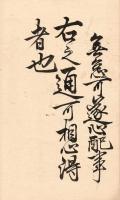 無急可遂心配事
右之通可想得
者也